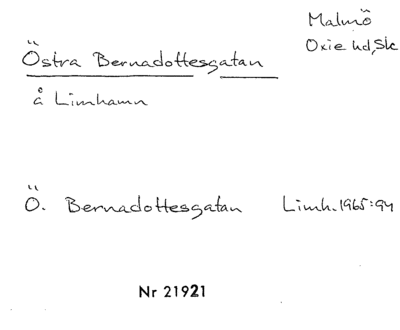 Malmö
Oxie hd, Sk
Östra Bernadottesgatan
å Limhamn
Ö. Bernadottesgatan Limh. 1965:94
Nr 21921